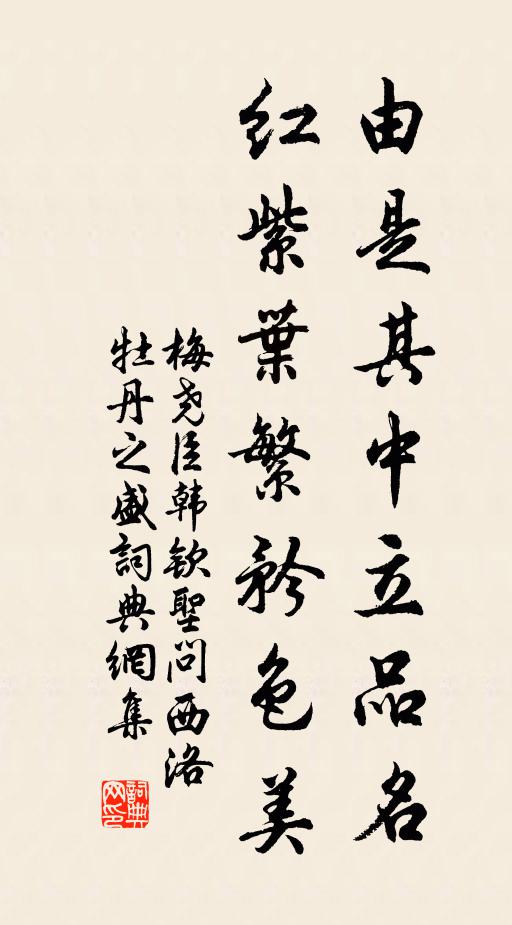 由是其中立品名
红紫葉繁矜色美
梅尧臣韩钦聖问西洛
牡丹之盛詞典網集
詞典網印